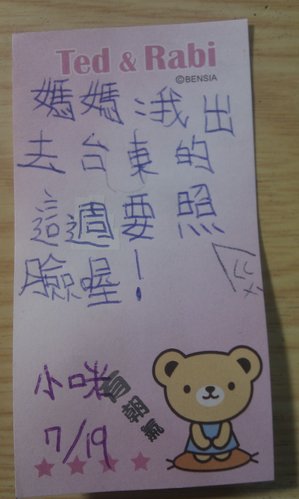 Ted & Rabi
©BENSIA
媽媽:我出
去台東的
這週要照
臉喔!
小咪
7/19